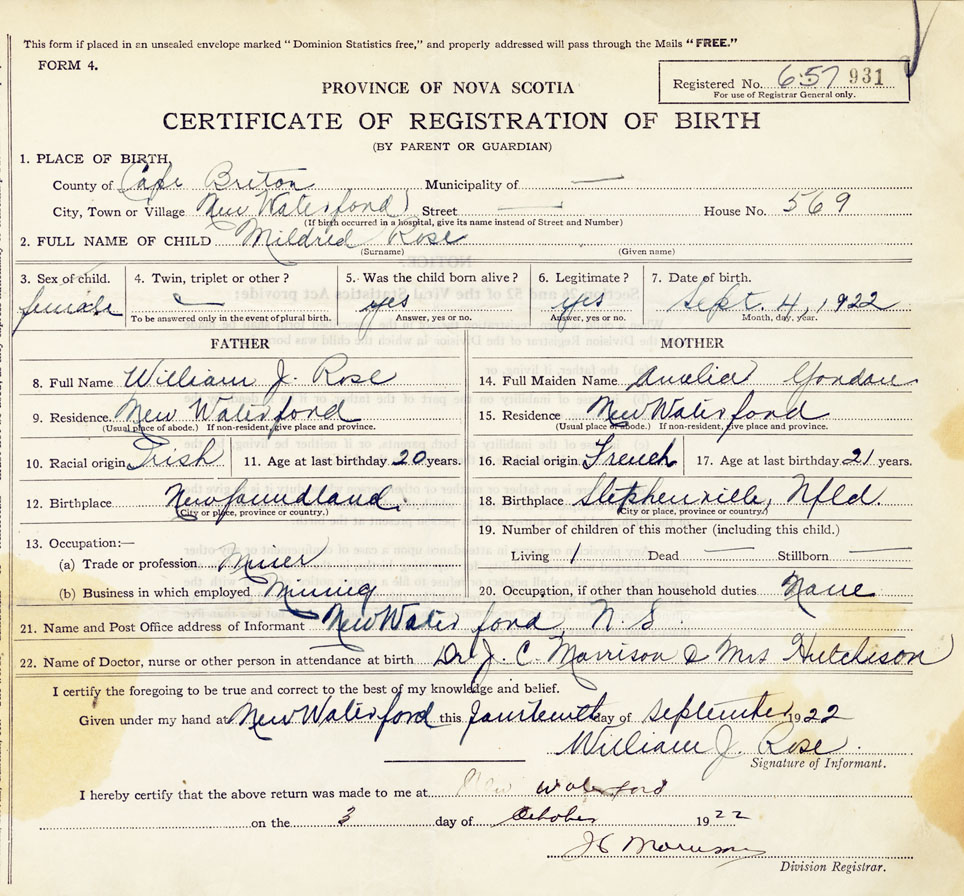 This form if placed in an unsealed envelope marked "Dominion Statistics free," and properly addressed will pass through the Mails "FREE."
FORM 4.
Registered No. 657 931
For use of Registrar General only.
PROVINCE OF NOVA SCOTIA
CERTIFICATE OF REGISTRATION OF BIRTH
(BY PARENT OR GUARDIAN)
1. PLACE OF BIRTH,
County of Cape Breton Municipality of —
City, Town or Village New Waterford Street — House No. 569
(If birth occurred in a hospital, give its name instead of Street and Number)
2. FULL NAME OF CHILD Mildred Rose
(Surname) (Given name)
3. Sex of child. 4. Twin, triplet or other? 5. Was the child born alive? 6. Legitimate? 7. Date of birth.
female — yes yes Sept. 4, 1922
To be answered only in the event of plural birth. Answer, yes or no. Answer, yes or no. Month, day, year.
FATHER MOTHER
8. Full Name William J. Rose 14. Full Maiden Name
9. Residence. New Waterford 15. Residence New Waterford
(Usual place of abode.) If non-resident, give place and province. (Usual place of abode.) If non-resident, give place and province.
10. Racial origin Irish 11. Age at last birthday 20 years. 16. Racial origin French 17. Age at last birthday 21 years.
12. Birthplace Newfoundland. 18. Birthplace Stephenville, Nfld.
(City or place, province or country.) (City or place, province or country.)
13. Occupation:— 19. Number of children of this mother (including this child.)
(a) Trade or profession Miner Living 1 Dead — Stillborn —
(b) Business in which employed Mining 20. Occupation, if other than household duties None
21. Name and Post Office address of Informant New Waterford, N. S.
22. Name of Doctor, nurse or other person in attendance at birth Dr J. C. Morrison & Mrs Hutchison
I certify the foregoing to be true and correct to the best of my knowledge and belief.
Given under my hand at New Waterford this fourteenth day of September 1922
William J. Rose.
Signature of Informant.
I hereby certify that the above return was made to me at New Waterford
on the 3 day of October 1922
J C Morrison
Division Registrar.